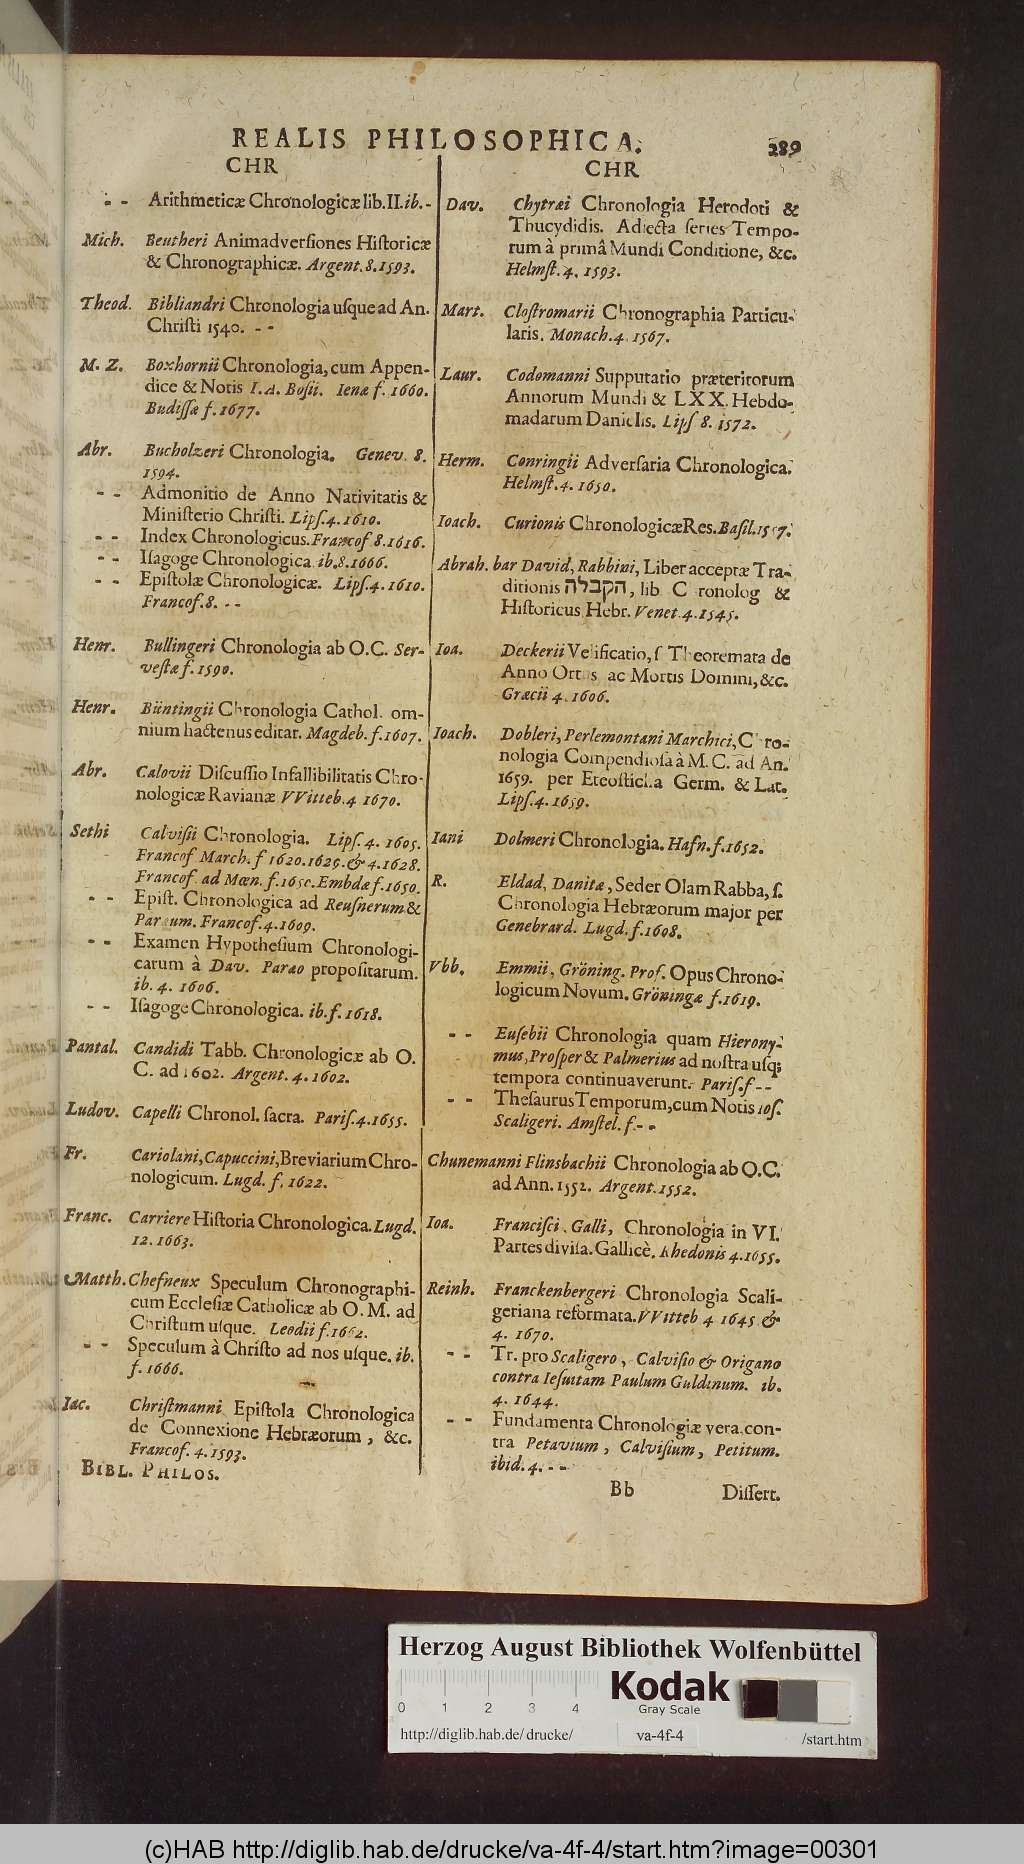 REALIS PHILOSOPHICA. 289
CHR
- - Arithmeticæ Chronologicæ lib. II. ib. -
Mich. Beutheri Animadverſiones Hiſtoricæ
& Chronographicæ. Argent. 8. 1593.
Theod. Bibliandri Chronologia uſque ad An.
Chriſti 1540. - -
M. Z. Boxhornii Chronologia, cum Appen-
dice & Notis I. A. Boſii. Ienæ f. 1660.
Budiſſæ f. 1677.
Abr. Bucholzeri Chronologia. Genev. 8.
1594.
- - Admonitio de Anno Nativitatis &
Miniſterio Chriſti. Lipſ. 4. 1610.
- - Index Chronologicus. Francof 8. 1616.
- - Iſagoge Chronologica ib. 8. 1666.
- - Epiſtolæ Chronologicæ. Lipſ. 4. 1610.
Francof. 8. - -
Henr. Bullingeri Chronologia ab O.C. Ser-
veſtæ f. 1590.
Henr. Büntingii Chronologia Cathol. om-
nium hactenus editar. Magdeb. f. 1607.
Abr. Calovii Diſcuſſio Infallibilitatis Chro-
nologicæ Ravianæ VVitteb. 4 1670.
Sethi Calviſii Chronologia. Lipſ. 4. 1605.
Francof March. f 1620. 1629. & 4. 1628.
Francof. ad Mœn. f. 1650. Embdæ f. 1650.
- - Epiſt. Chronologica ad Reuſnerum &
Paræum. Francof. 4. 1609.
- - Examen Hypotheſium Chronologi-
carum à Dav. Paræo propoſitarum.
ib. 4. 1606.
- - Iſagoge Chronologica. ib. f. 1618.
Pantal. Candidi Tabb. Chronologicæ ab O.
C. ad 1602. Argent. 4. 1602.
Ludov. Capelli Chronol. ſacra. Pariſ. 4. 1655.
Fr. Cariolani, Capuccini, Breviarium Chro-
nologicum. Lugd. f. 1622.
Franc. Carriere Hiſtoria Chronologica. Lugd.
12. 1663.
Matth. Chefneux Speculum Chronographi-
cum Eccleſiæ Catholicæ ab O.M. ad
Chriſtum uſque. Leodii f. 1662.
- - Speculum à Chriſto ad nos uſque. ib.
f. 1666.
Iac. Chriſtmanni Epiſtola Chronologica
de Connexione Hebræorum, &c.
Francof. 4. 1593.
BIBL. PHILOS.
CHR
Dav. Chytræi Chronologia Herodoti &
Thucydidis. Adiecta ſeries Tempo-
rum à primâ Mundi Conditione, &c.
Helmſt. 4. 1593.
Mart. Cloſtromarii Chronographia Particu-
laris. Monach. 4. 1567.
Laur. Codomanni Supputatio præteritorum
Annorum Mundi & LXX. Hebdo-
madarum Danielis. Lipſ 8. 1572.
Herm. Conringii Adverſaria Chronologica.
Helmſt. 4. 1650.
Ioach. Curionis Chronologicæ Res. Baſil.
Abrah. bar David, Rabbini, Liber acceptæ Tra-
ditionis הקבלה, lib C ronolog &
Hiſtoricus Hebr. Venet. 4. 1545.
Ioa. Deckerii Velificatio, ſ Theoremata de
Anno Ortus ac Mortis Domini, &c.
Græcii 4. 1606.
Ioach. Dobleri, Perlemontani Marchici, Chro-
nologia Compendioſa à M.C. ad An.
1659. per Eteoſticha Germ. & Lat.
Lipſ. 4. 1659.
Iani Dolmeri Chronologia. Hafn. f. 1652.
R. Eldad, Danitæ, Seder Olam Rabba, ſ.
Chronologia Hebræorum major per
Genebrard. Lugd. f. 1608.
Vbb. Emmii, Gröning. Prof. Opus Chrono-
logicum Novum. Gröningæ f. 1619.
- - Euſebii Chronologia quam Hierony-
mus, Proſper & Palmerius ad noſtra uſq;
tempora continuaverunt. Pariſ. f - -
- - Theſaurus Temporum, cum Notis Ioſ.
Scaligeri. Amſtel. f. - -
Chunemanni Flinsbachii Chronologia ab O.C.
ad Ann. 1552. Argent. 1552.
Ioa. Franciſci Galli, Chronologia in VI.
Partes diviſa. Gallicè. Rhedonis 4. 1655.
Reinh. Franckenbergeri Chronologia Scali-
geriana reformata. VVitteb 4 1645 &
4. 1670.
- - Tr. pro Scaligero, Calviſio & Origano
contra Ieſuitam Paulum Guldinum. ib.
4. 1644.
- - Fundamenta Chronologiæ vera. con-
tra Petavium, Calviſium, Petitum.
ibid. 4. - -
Bb Diſſert.
Herzog August Bibliothek Wolfenbüttel
0 1 2 3 4
Kodak
Gray Scale
http://diglib.hab.de/drucke/ va-4f-4 /start.htm
(c)HAB http://diglib.hab.de/drucke/va-4f-4/start.htm?image=00301